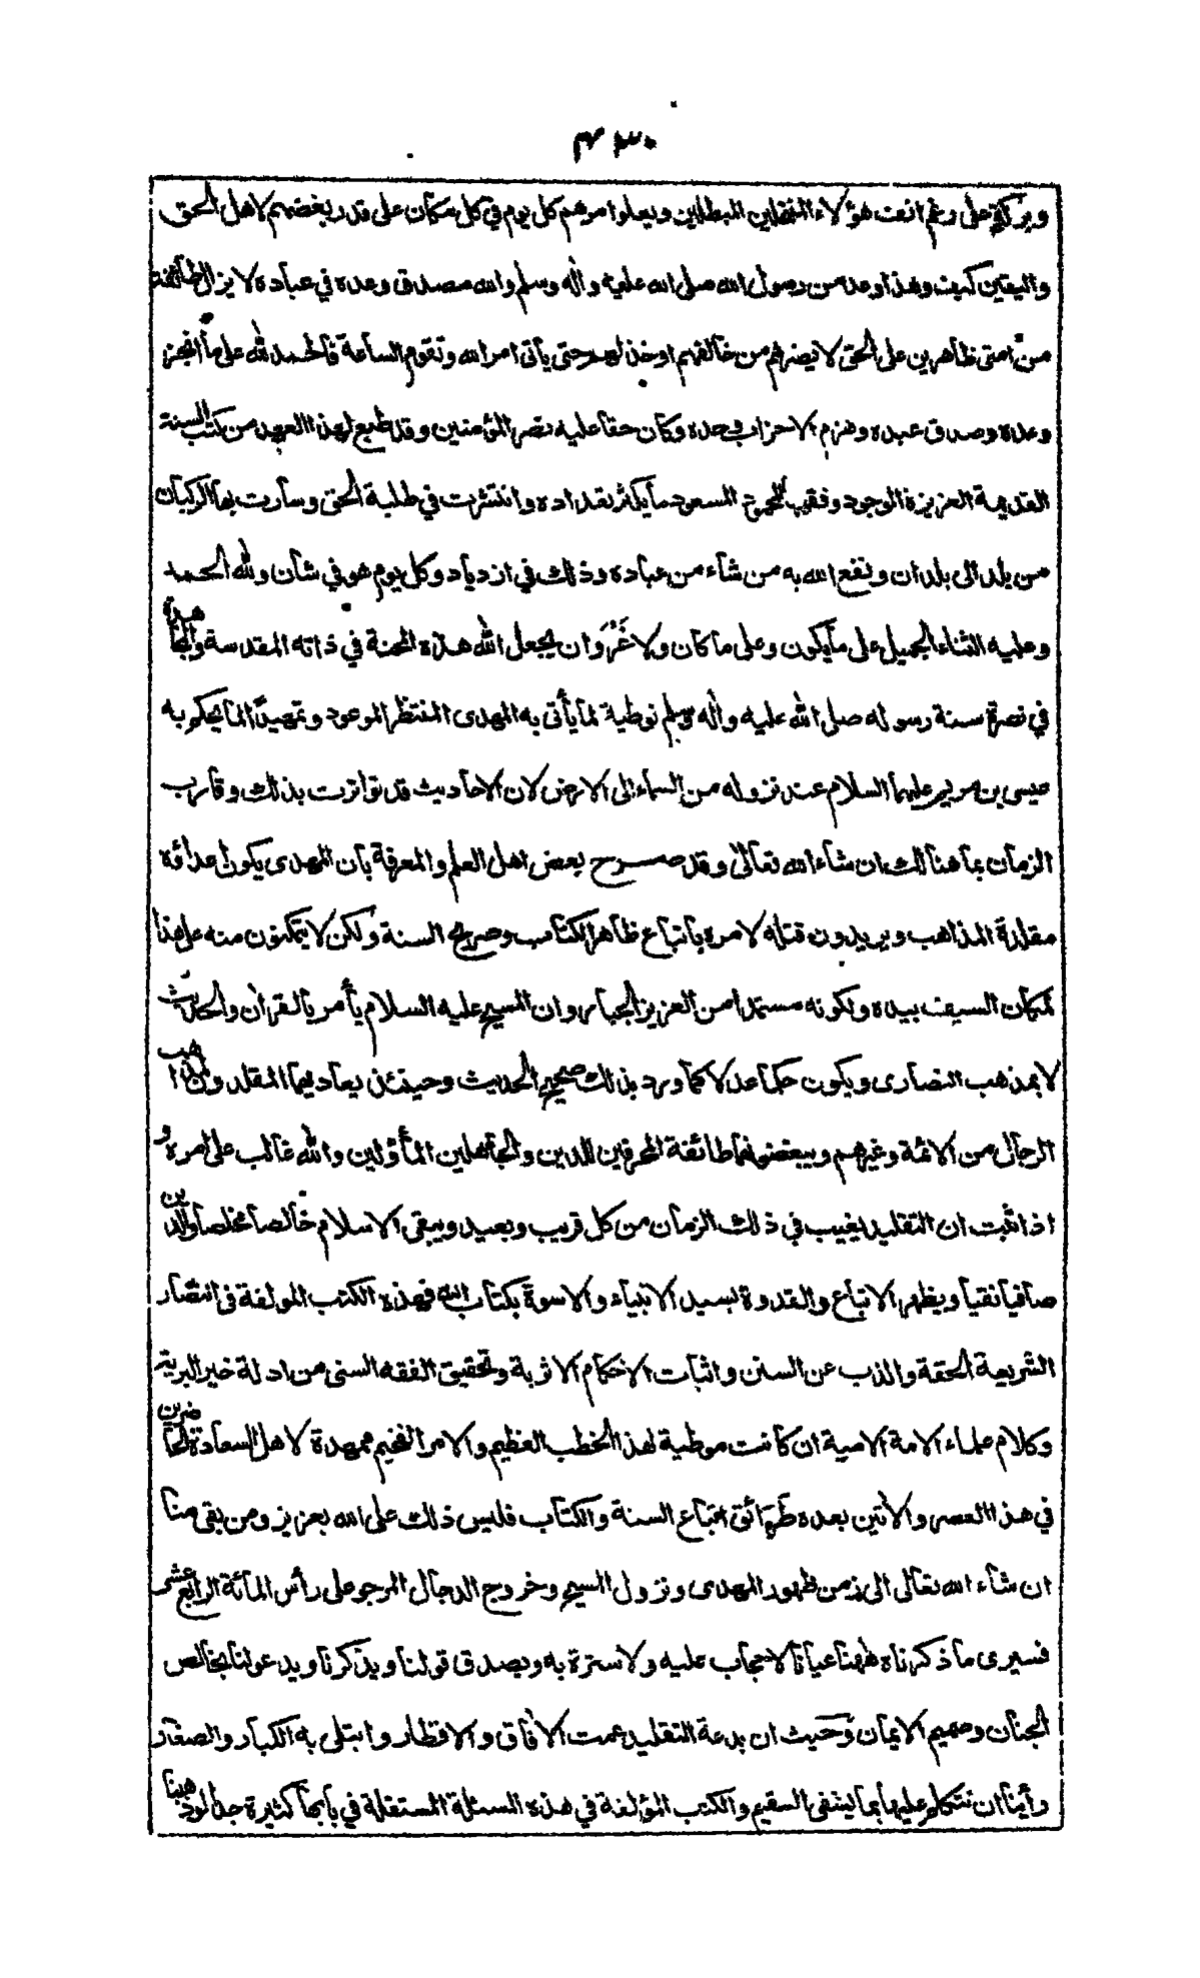 ٤٣٠
وبركة على رغم انف هؤلاء المنتحلين المبطلين ويعلو امرهم كل يوم في كل مكان على قدر بغضهم لاهل الحق
واليقين كيف وهذا وعد من رسول الله صلى الله عليه واله وسلم والله مصدق وعده في عباده لا يزال طائفة
من امتى ظاهرين على الحق لا يضرهم من خالفهم او خذلهم حتى يأتى امر الله وتقوم الساعة فالحمد لله على ما انجز
وعده وصدق عبده وهزم الاحزاب وحده وكان حقا عليه نصر المؤمنين وقد طبع لهذا العهد من كتب السنة
القديمة العزيزة الوجود وفقه المسعود ما يكثر تعداده وانتشرت في طلبة الحق وسارت بها الركبان
من بلد الى بلدان ونفع الله به من شاء من عباده وذلك في ازدياد وكل يوم هو في شان ولله الحمد
وعليه الثناء الجميل على ما يكون وعلى ما كان ولا غَرْوَ ان يجعل الله هذه المحنة في ذاته المقدسة والمجاهدة
في نصرة سنة رسوله صلى الله عليه واله وسلم توطية لما يأتى به المهدى المنتظر الموعود وتمهيدًا لما يحكم به
عيسى بن مريم عليهما السلام عند نزوله من السماء الى الارض لان الاحاديث قد تواترت بذلك وقارب
الزمان بما هنالك ان شاء الله تعالى وقد صرح بعض اهل العلم والمعرفة بان المهدى يكون اعداؤه
مقلدة المذاهب ويريدون قتله لامره باتباع ظاهر الكتاب وصريح السنة ولكن لا يتمكنون منه على هذا
لمكان السيف بيده ولكونه مستمدا من العزيز الجبار وان المسيح عليه السلام يأمر بالقران والحديث
لا بمذهب النصارى ويكون حكما عدلا كما ورد بذلك صحيح الحديث وحينئذ يعاديهما المقلد لمذاهب
الرجال من الائمة وغيرهم ويبغضونهما طائفة المحرفين للدين والجاهلين المأؤلين والله غالب على امره و
اذا ثبت ان التقليد يغيب في ذلك الزمان من كل قريب وبعيد ويبقى الاسلام خالصا مخلصا والدين
صافيا نقيا ويظهر الاتباع والقدوة لسيد الانبياء والاسوة بكتاب الله فهذه الكتب المولفة فى انتصار
الشريعة الحقة والذب عن السنن واثبات الاحكام الاثرية وتحقيق الفقه السنى من ادلة خير البرية
وكلام علماء الامة الامية ان كانت موطية لهذا الخطب العظيم والامر الفخيم ممهدة لاهل السعادة الحاضرين
في هذا العصر والاتين بعده طرائق اتباع السنة والكتاب فليس ذلك على الله بعزيز ومن بقى منا
ان شاء الله تعالى الى زمن ظهور المهدى ونزول المسيح وخروج الدجال المرجو على رأس المائة الرابع عشر
فسيرى ما ذكرناه ههنا عيانا لا حجاب عليه ولا سترة به ويصدق قولنا ويذكرنا ويدعو لنا بخالص
الجنان وصميم الايمان وحيث ان بدعة التقليد عمت الافاق والاقطار وابتلى به الكبار والصغار
رأينا ان نتكلم عليها بما يشفى السقيم والكتب المؤلفة في هذه المسئلة المستقلة في بابها كثيرة جدا لو ذهبنا